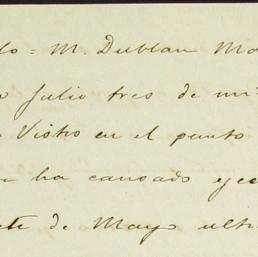 lo = M. Dublan Ma
Julio tres de mil
Visto en el punto
ha causado eje
de Mayo ult